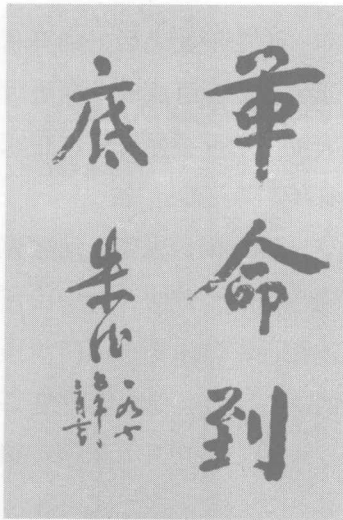 革命到
底 朱德
一九七
五年
三月六日